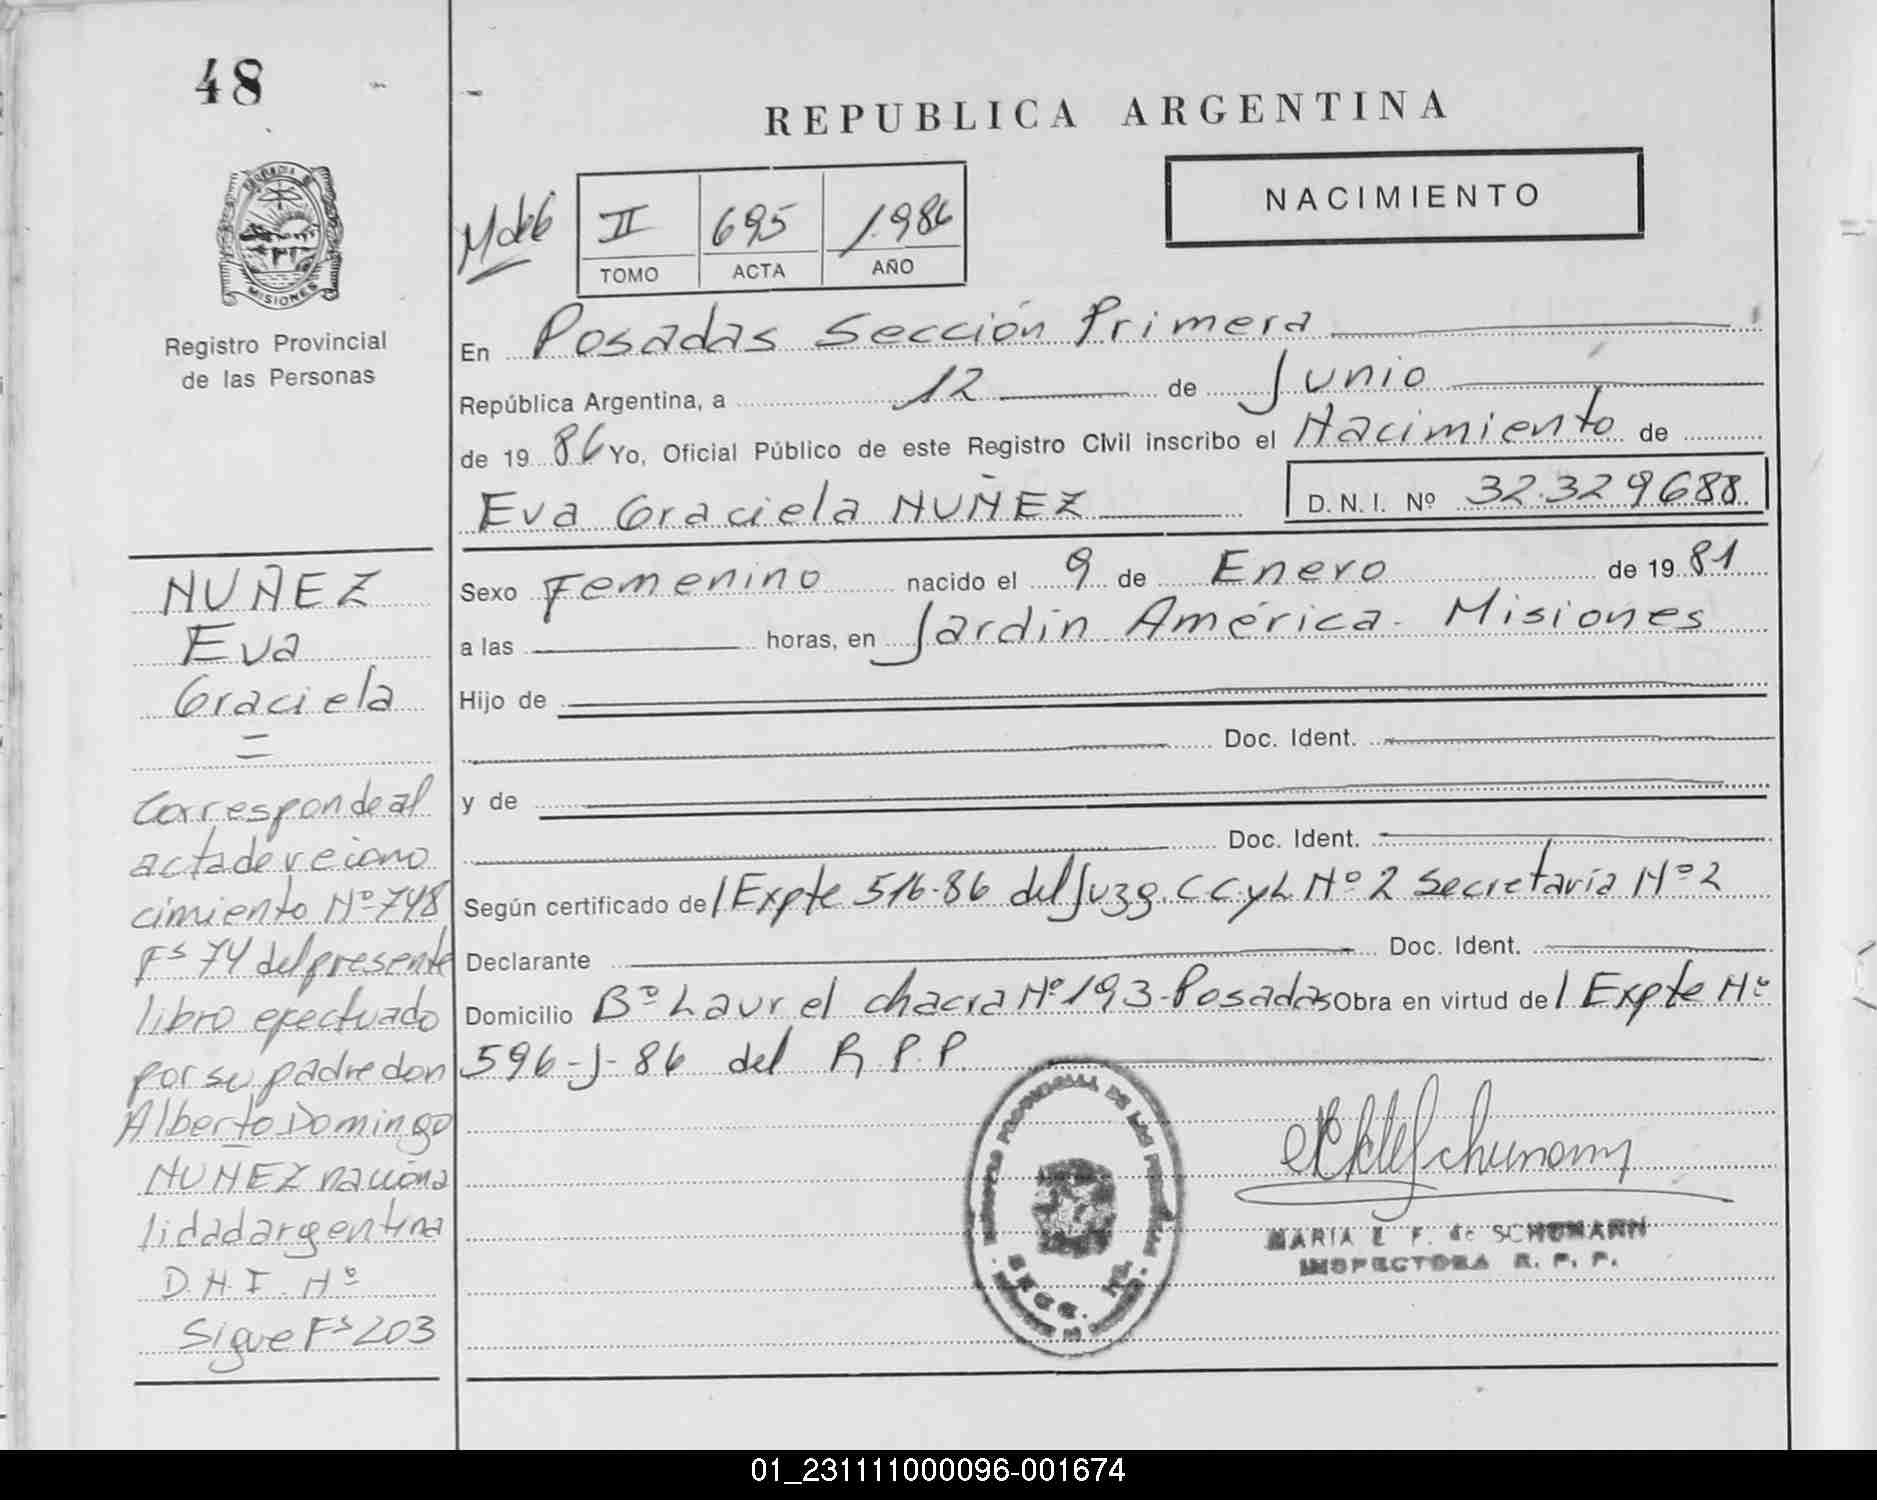 48
REPUBLICA ARGENTINA
MISIONES
Registro Provincial
de las Personas
II 695 1.986
TOMO ACTA AÑO
NACIMIENTO
En Posadas Sección Primera
República Argentina, a 12 de Junio
de 19 86 Yo, Oficial Público de este Registro Civil inscribo el Nacimiento de
Eva Graciela NUÑEZ D.N.I. Nº 32.329688
Sexo Femenino nacido el 9 de Enero de 19 81
a las horas, en Jardín América. Misiones
Hijo de
Doc. Ident.
y de
Doc. Ident.
Según certificado de/ Expte 516-86 del Juzg. C C y L Nº 2 Secretaría Nº 2
Declarante Doc. Ident.
Domicilio Bº Laurel chacra Nº 193-Posadas Obra en virtud de/ Expte Nº
596-J-86 del R.P.P.
MARIA E F. de SCHUMANN
INSPECTORA R. P. P.
NUÑEZ
Eva
Graciela
=
Corresponde al
acta de recono
cimiento Nº 748
Fs 74 del presente
libro efectuado
por su padre don
Alberto Domingo
NUÑEZ naciona
lidad argentina
D.N.I. Nº
Sigue Fs 203
01_231111000096-001674